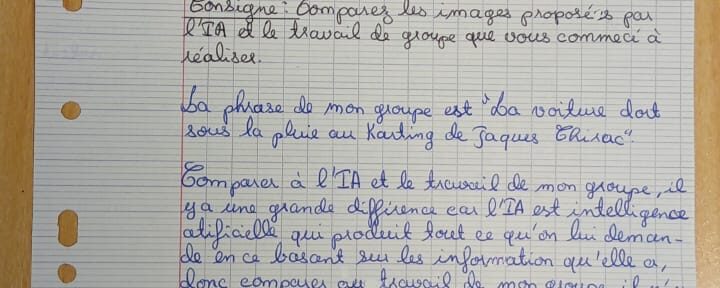 Consigne : Comparez les images proposé's par
l'IA et le travail de groupe que vous commecé à
réaliser.
La phrase de mon groupe est "La voiture dort
sous la pluie au Karting de Jaques Chirac".
Comparer à l'IA et le travail de mon groupe, il
y a une grande différence car l'IA est intelligence
atificielle qui produit tout ce qu'on lui deman-
de en ce basant sur les information qu'elle a,
donc comparer au travail de mon groupe il